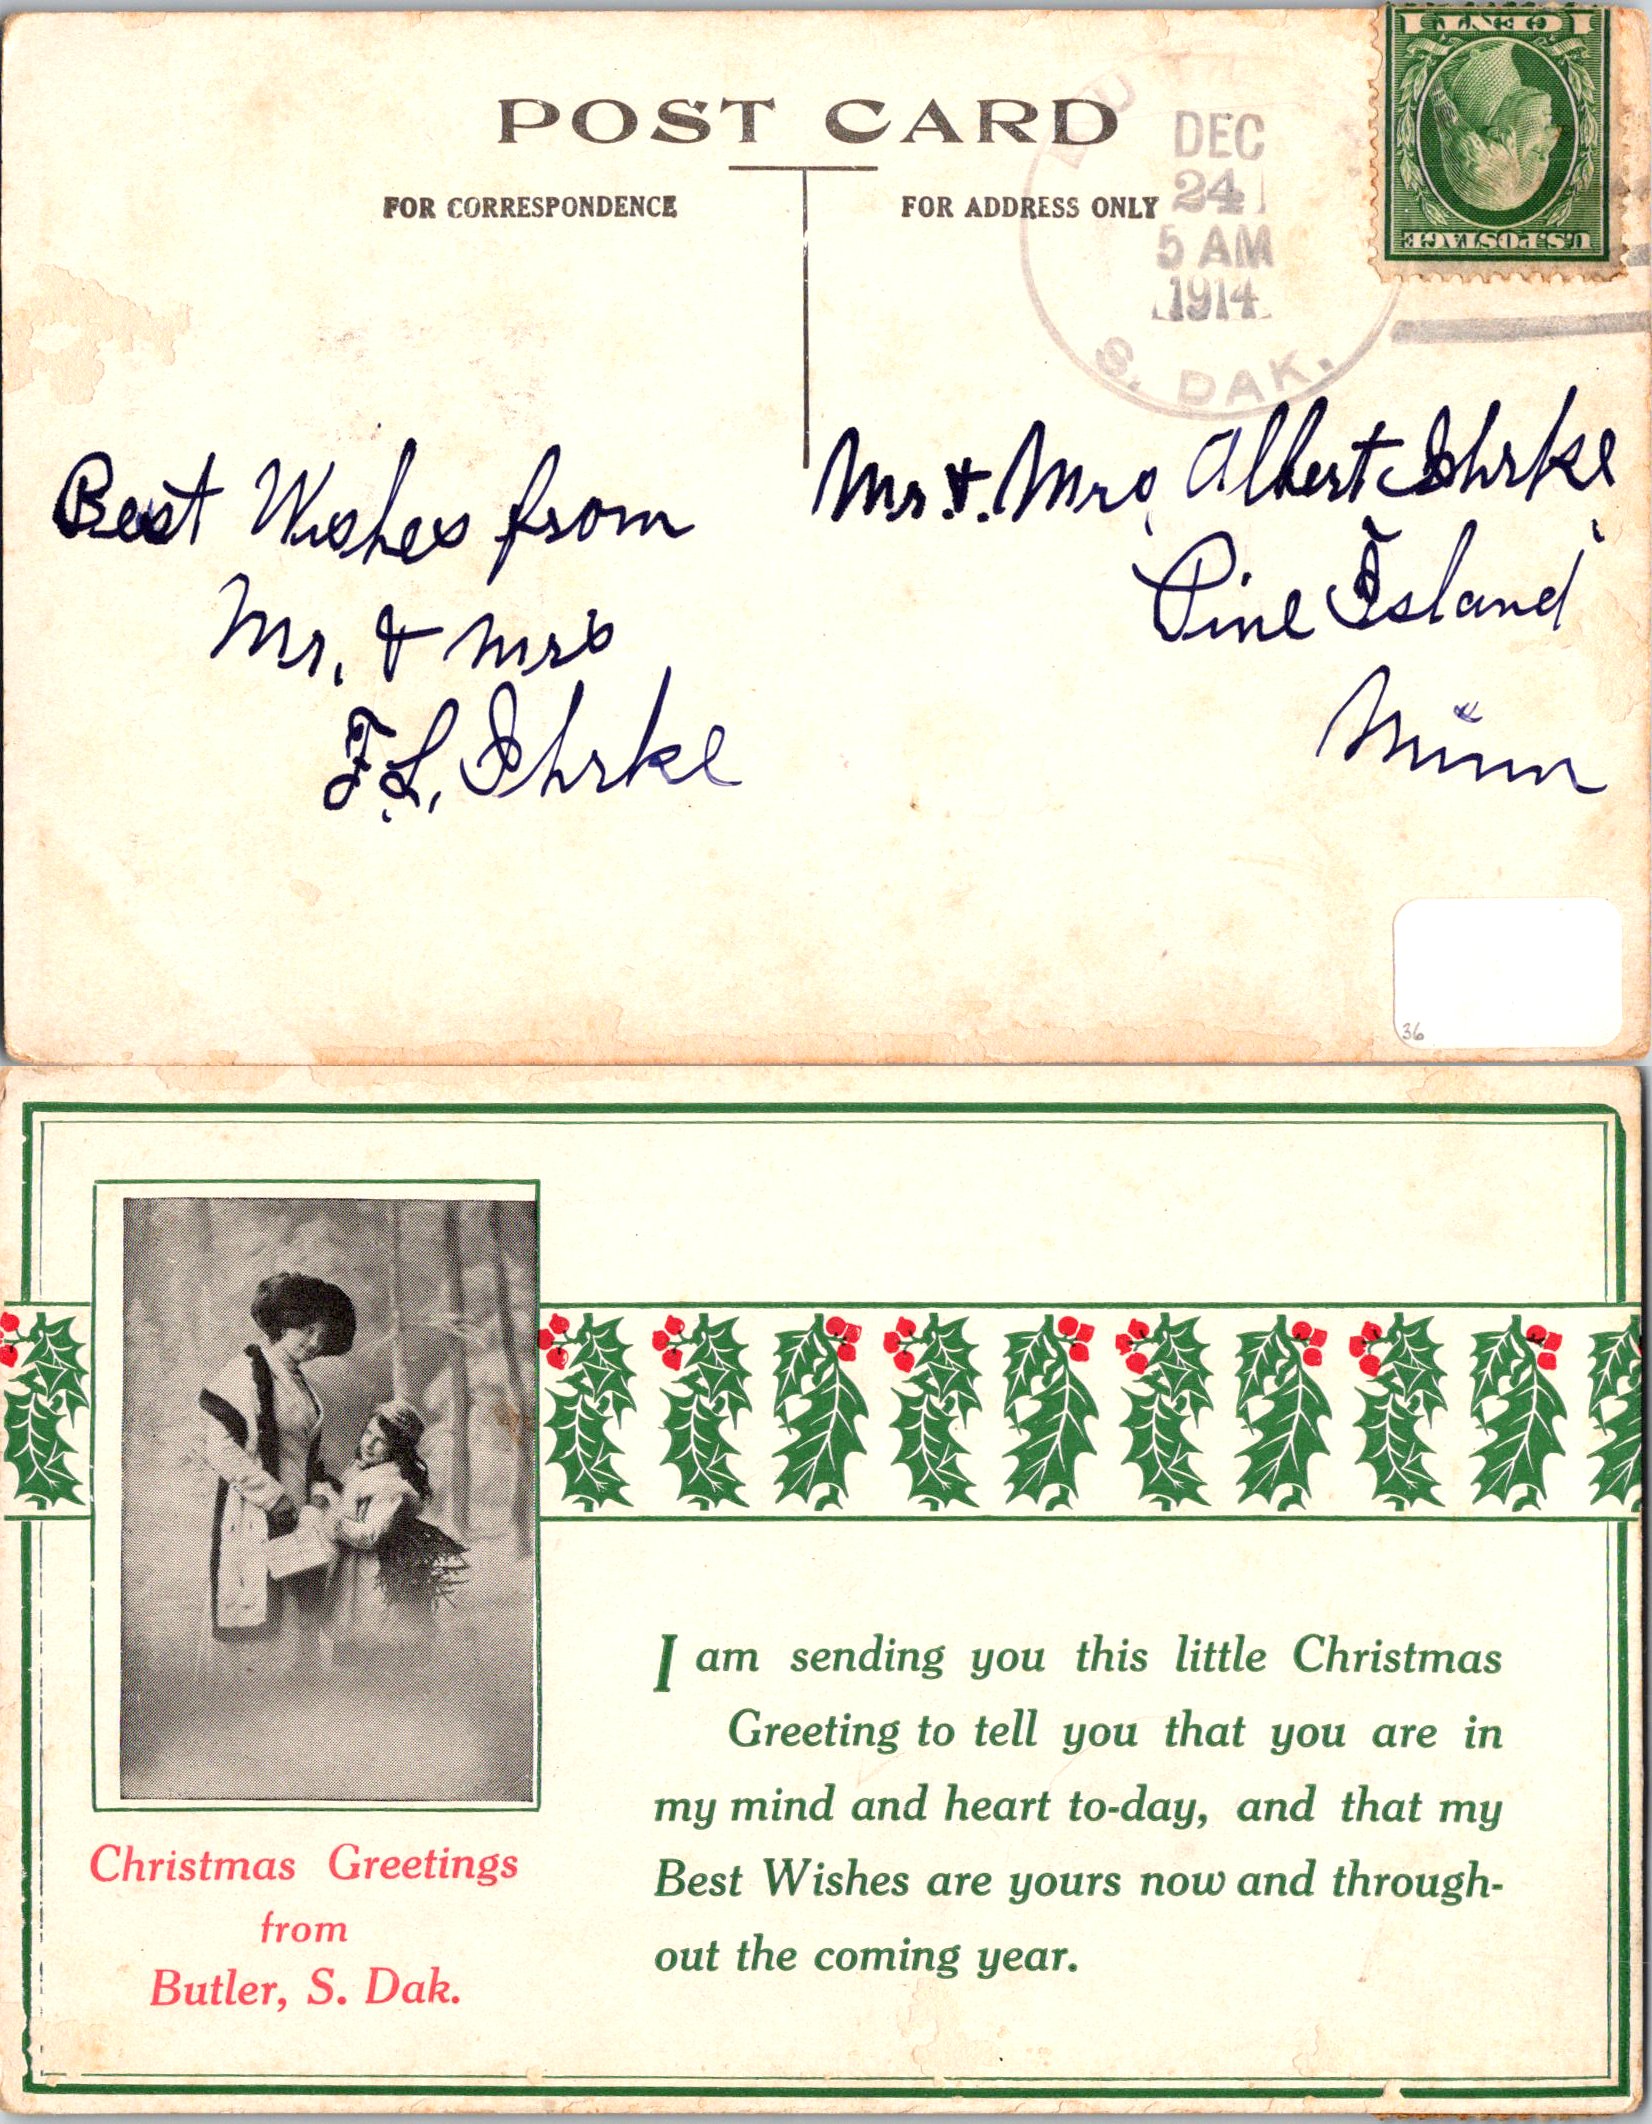 POST CARD
FOR CORRESPONDENCE
FOR ADDRESS ONLY
DEC
24
5 AM
1914
S. DAK.
1 CENT 1
U.S. POSTAGE
Best Wishes from
Mr. & Mrs
F. L. Ihrke
Mr. & Mrs. Albert Ihrke
Pine Island
Minn
36
Christmas Greetings
from
Butler, S. Dak.
I am sending you this little Christmas
Greeting to tell you that you are in
my mind and heart to-day, and that my
Best Wishes are yours now and through-
out the coming year.